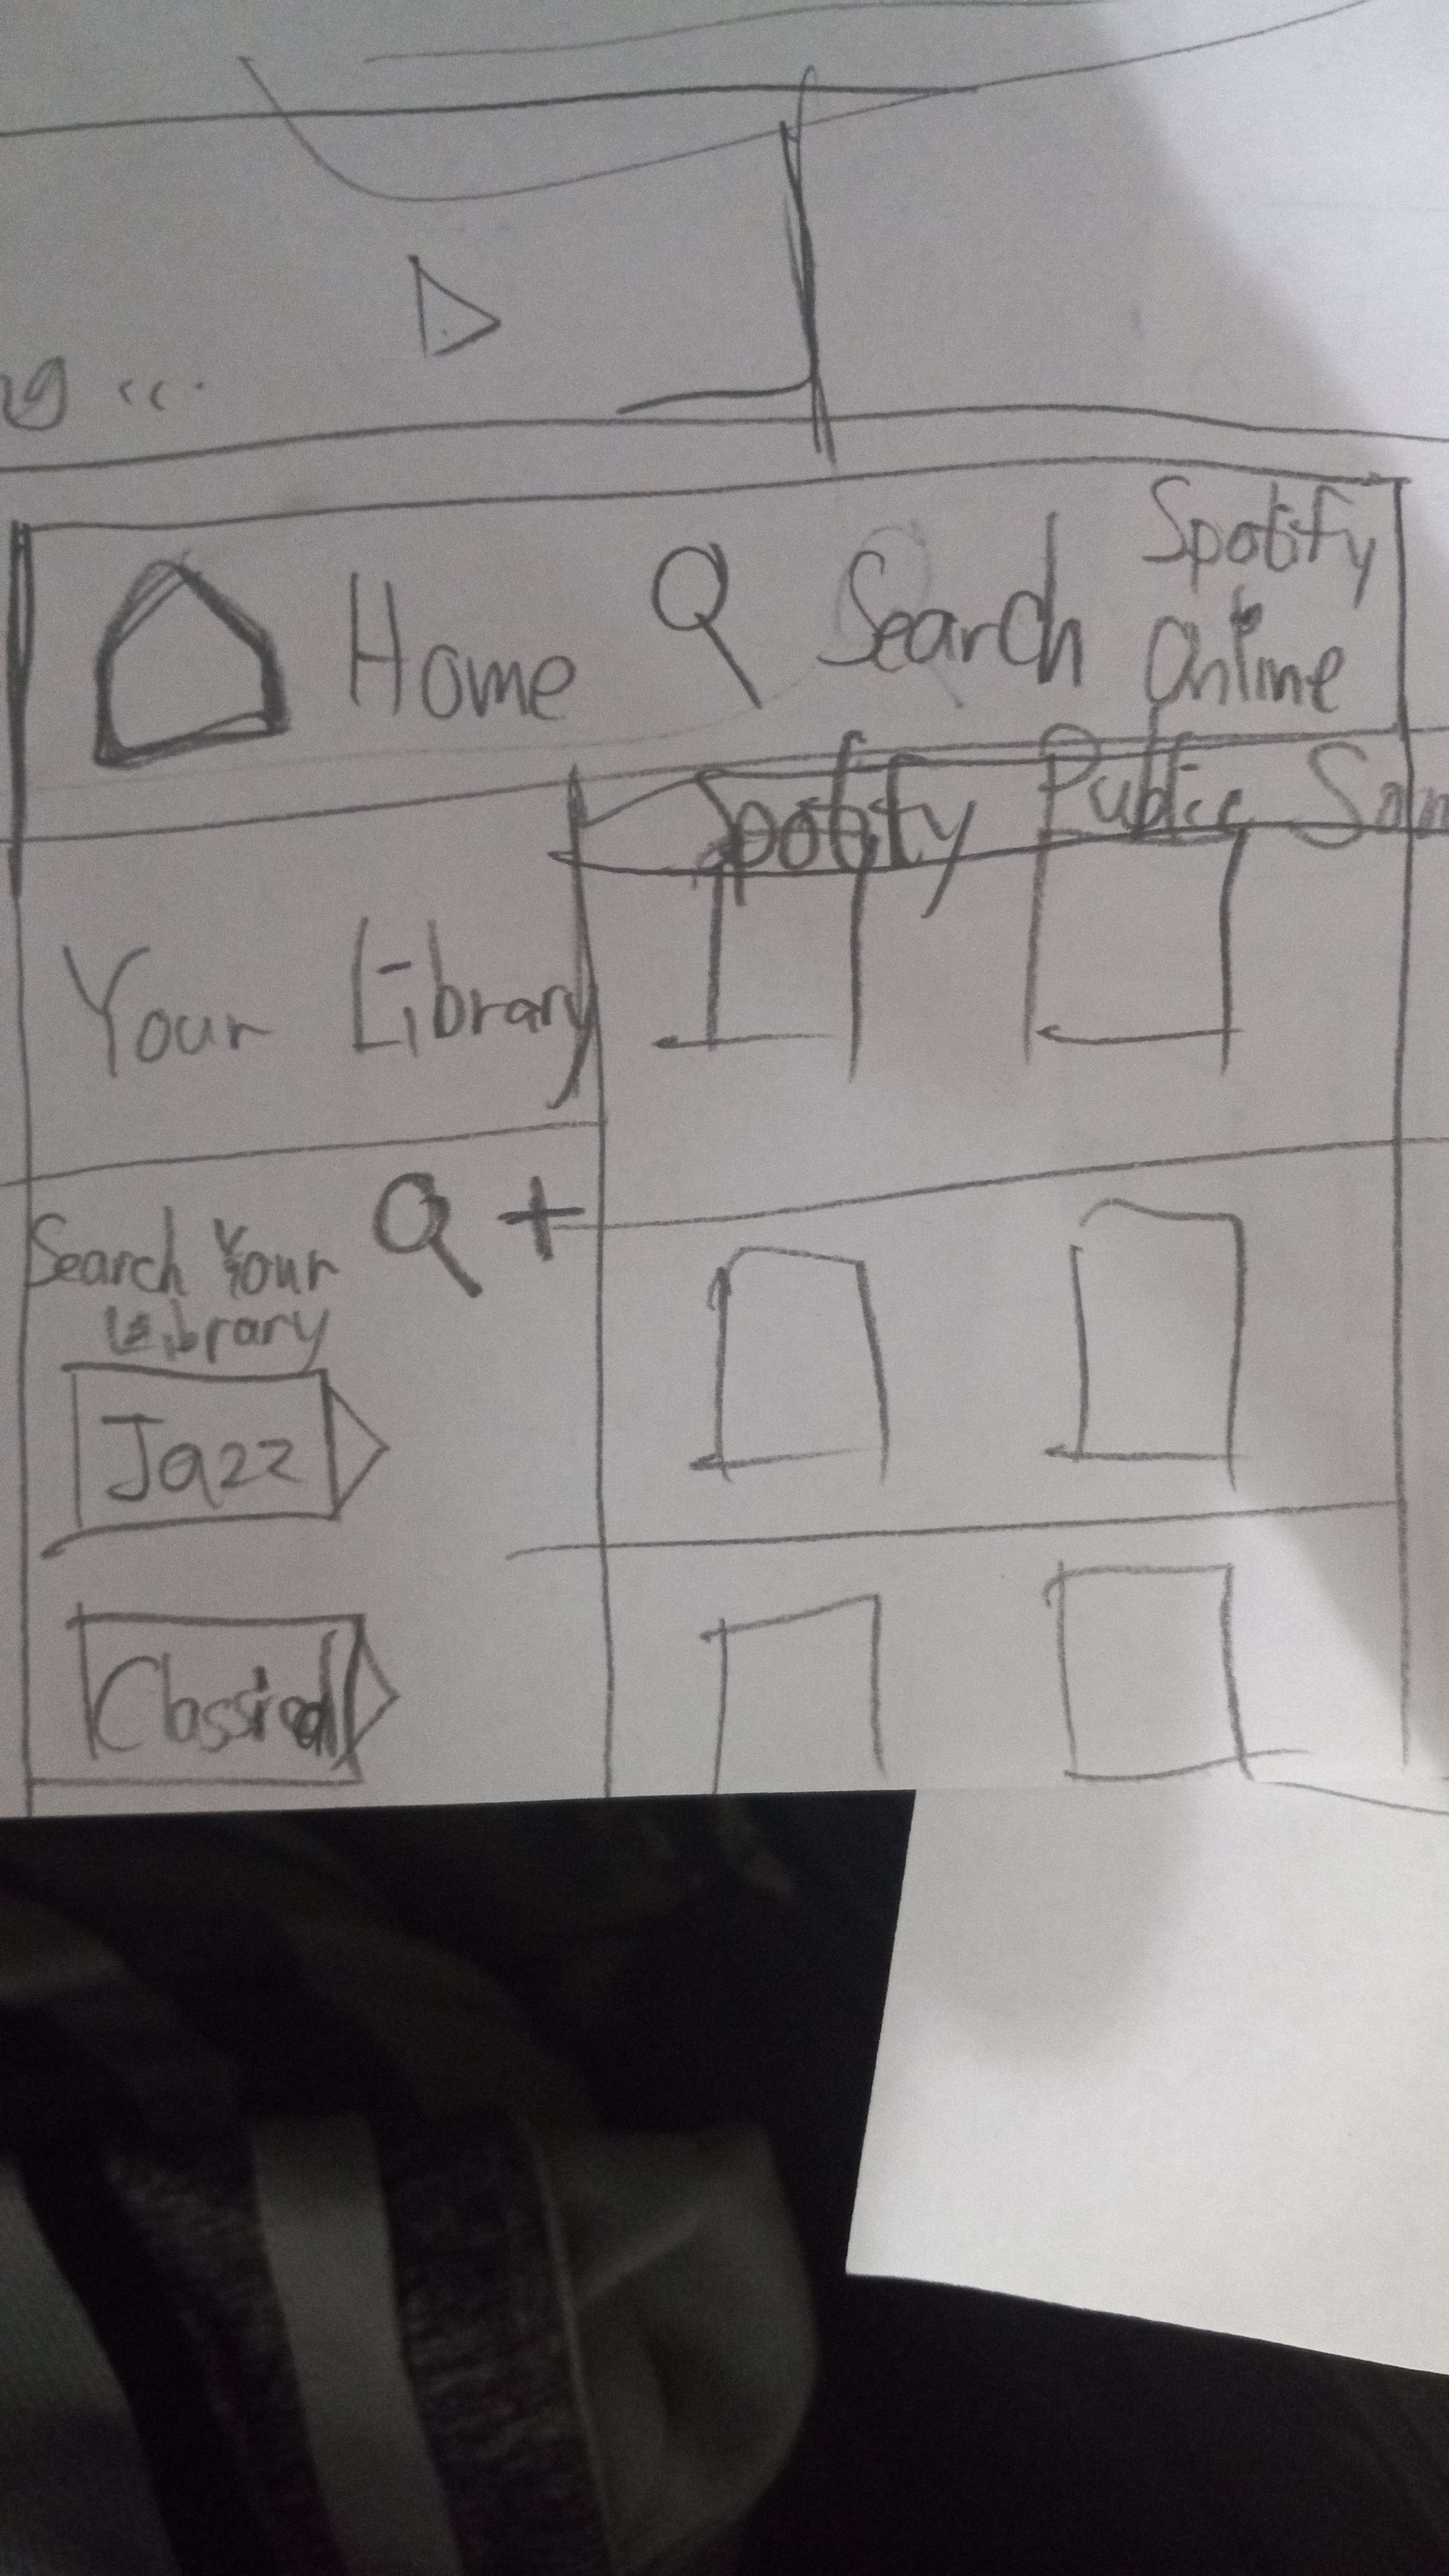 Home Search Spotify
Online
Spotify Public
Your Library
Search Your
Library
Jazz
Classical